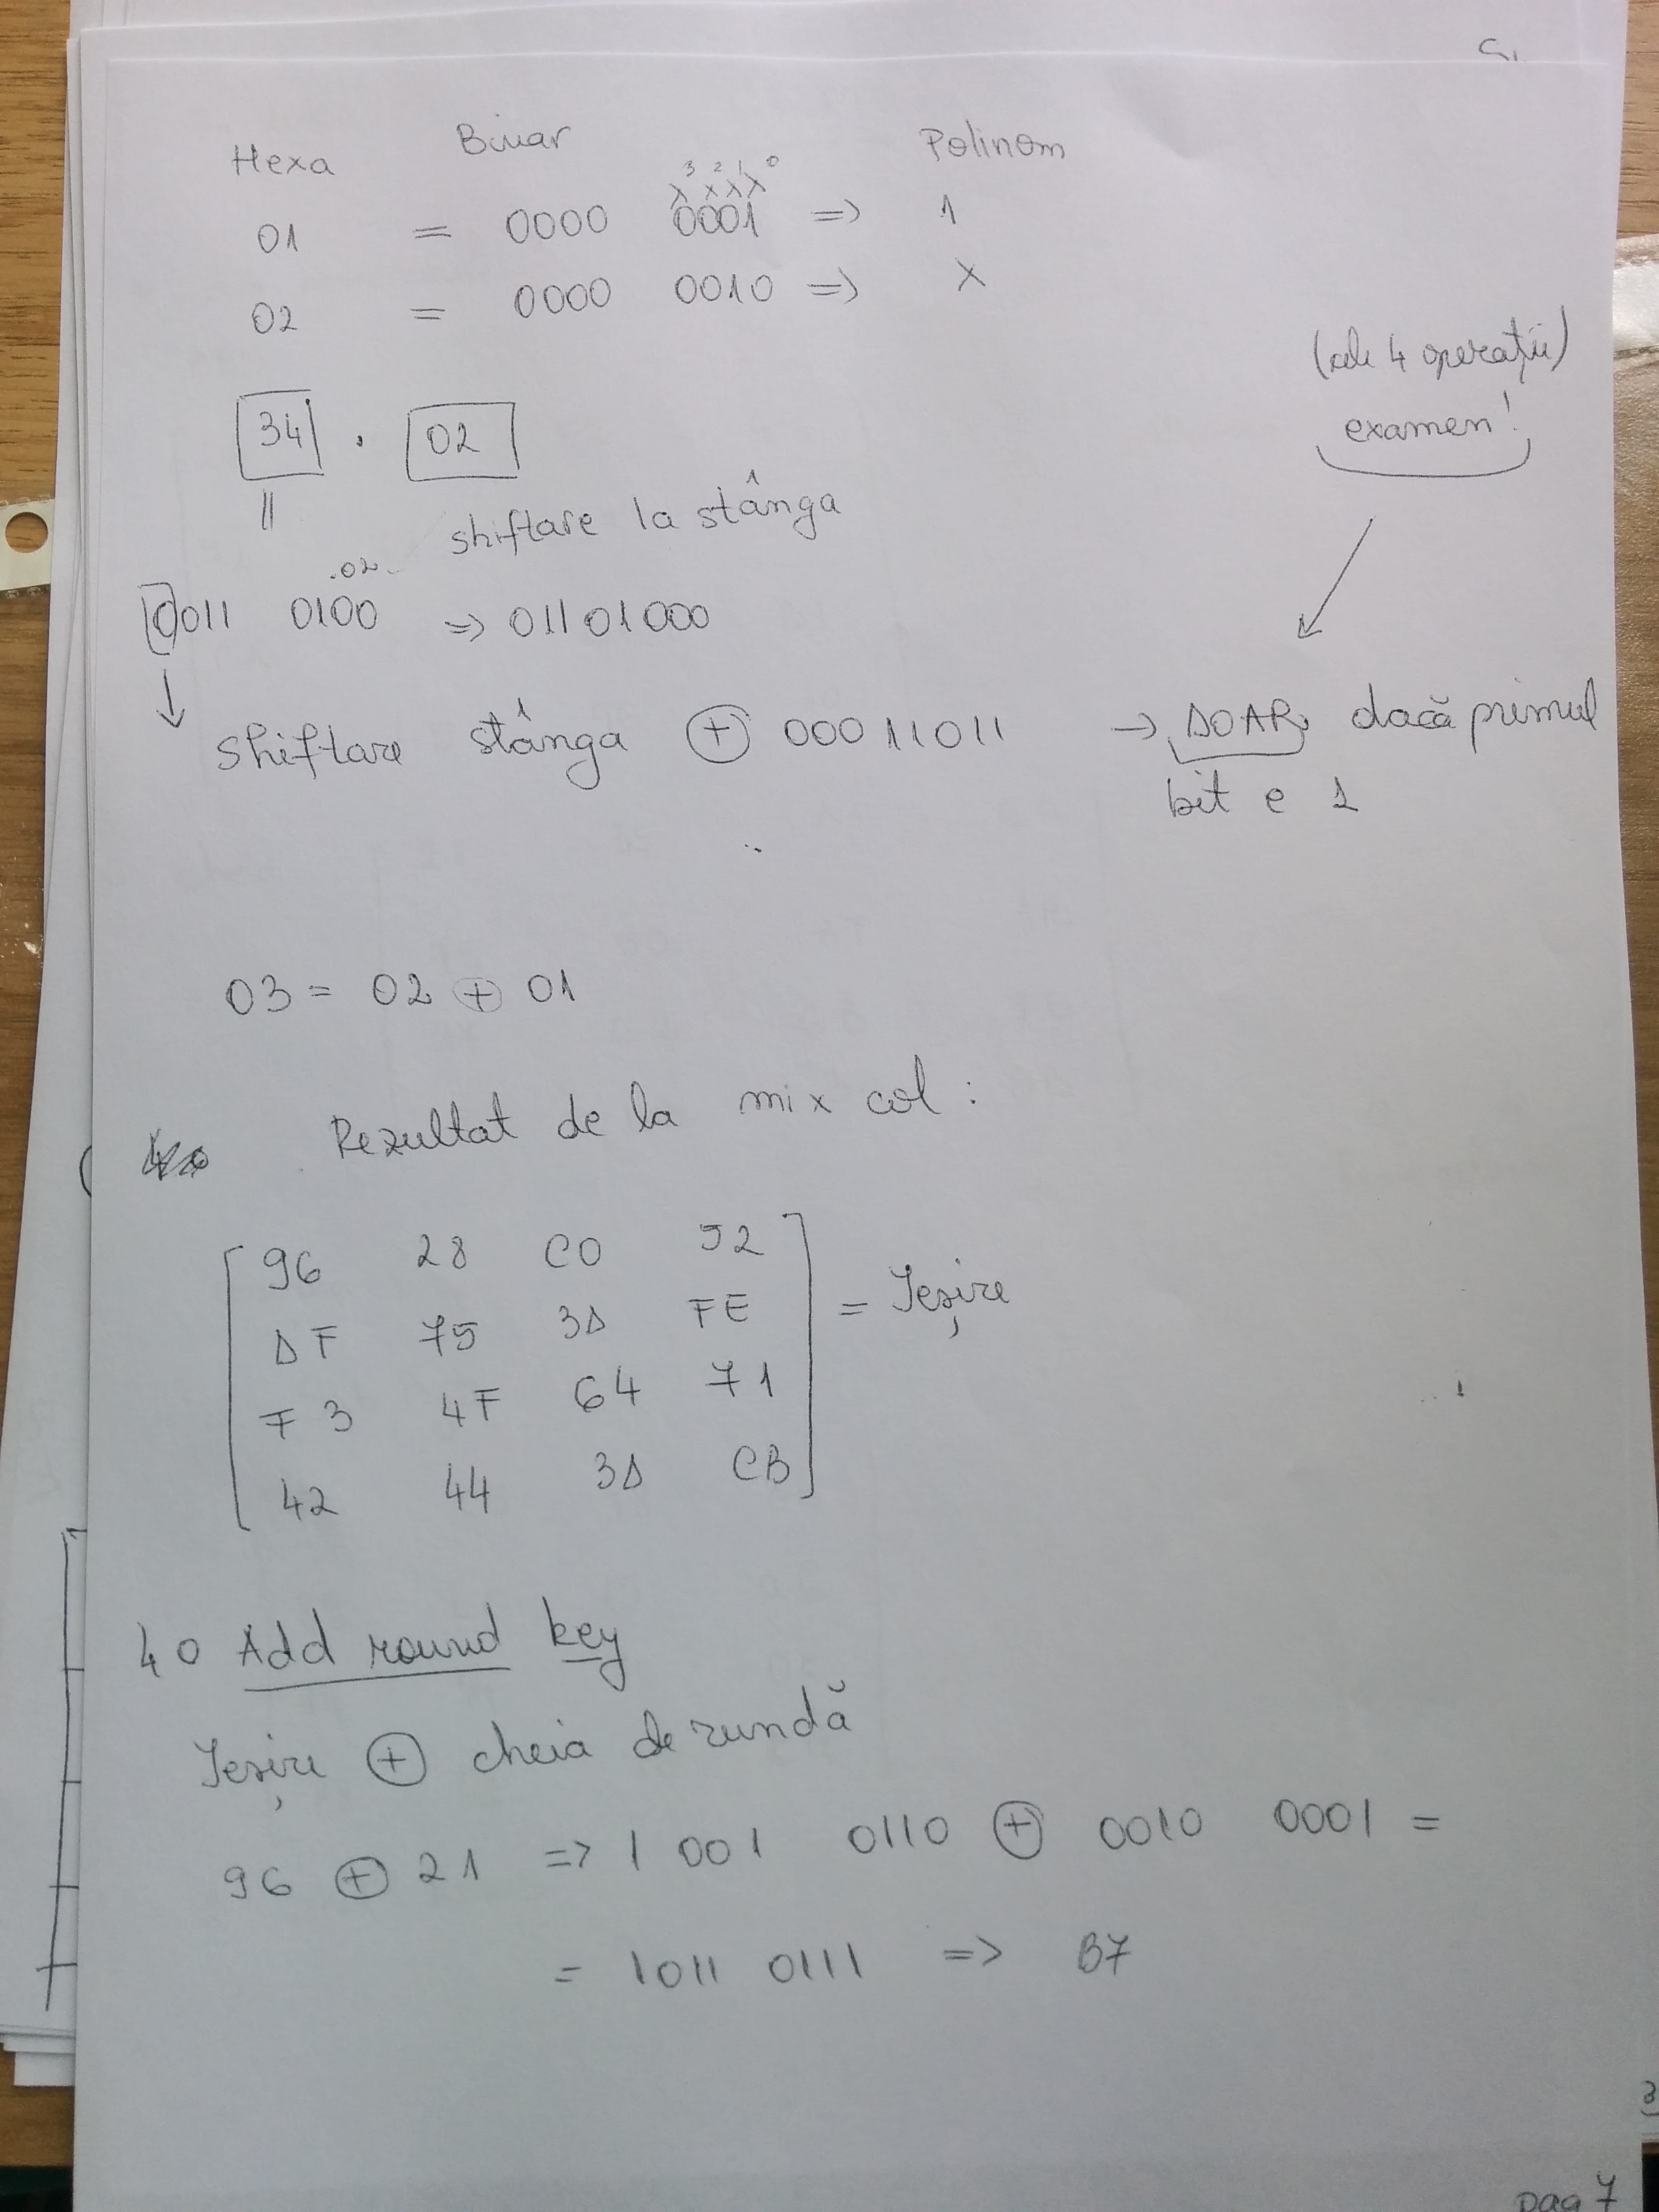 Hexa Binar Polinom
3 2 1 0
x x x x
01 = 0000 0001 => 1
02 = 0000 0010 => X
(cele 4 operații)
examen!
34 . 02
||
shiftare la stânga
.02
0011 0100 => 01101000
↓
Shiftare stânga ⊕ 00011011 → DOAR dacă primul
bit e 1
03 = 02 ⊕ 01
Rezultat de la mix col:
96 28 C0 52
DF 75 3D FE = Ieșire
F3 4F 64 71
42 44 3D CB
4o Add round key
Ieșire ⊕ cheia de rundă
96 ⊕ 21 => 1001 0110 ⊕ 0010 0001 =
= 1011 0111 => B7
pag 7